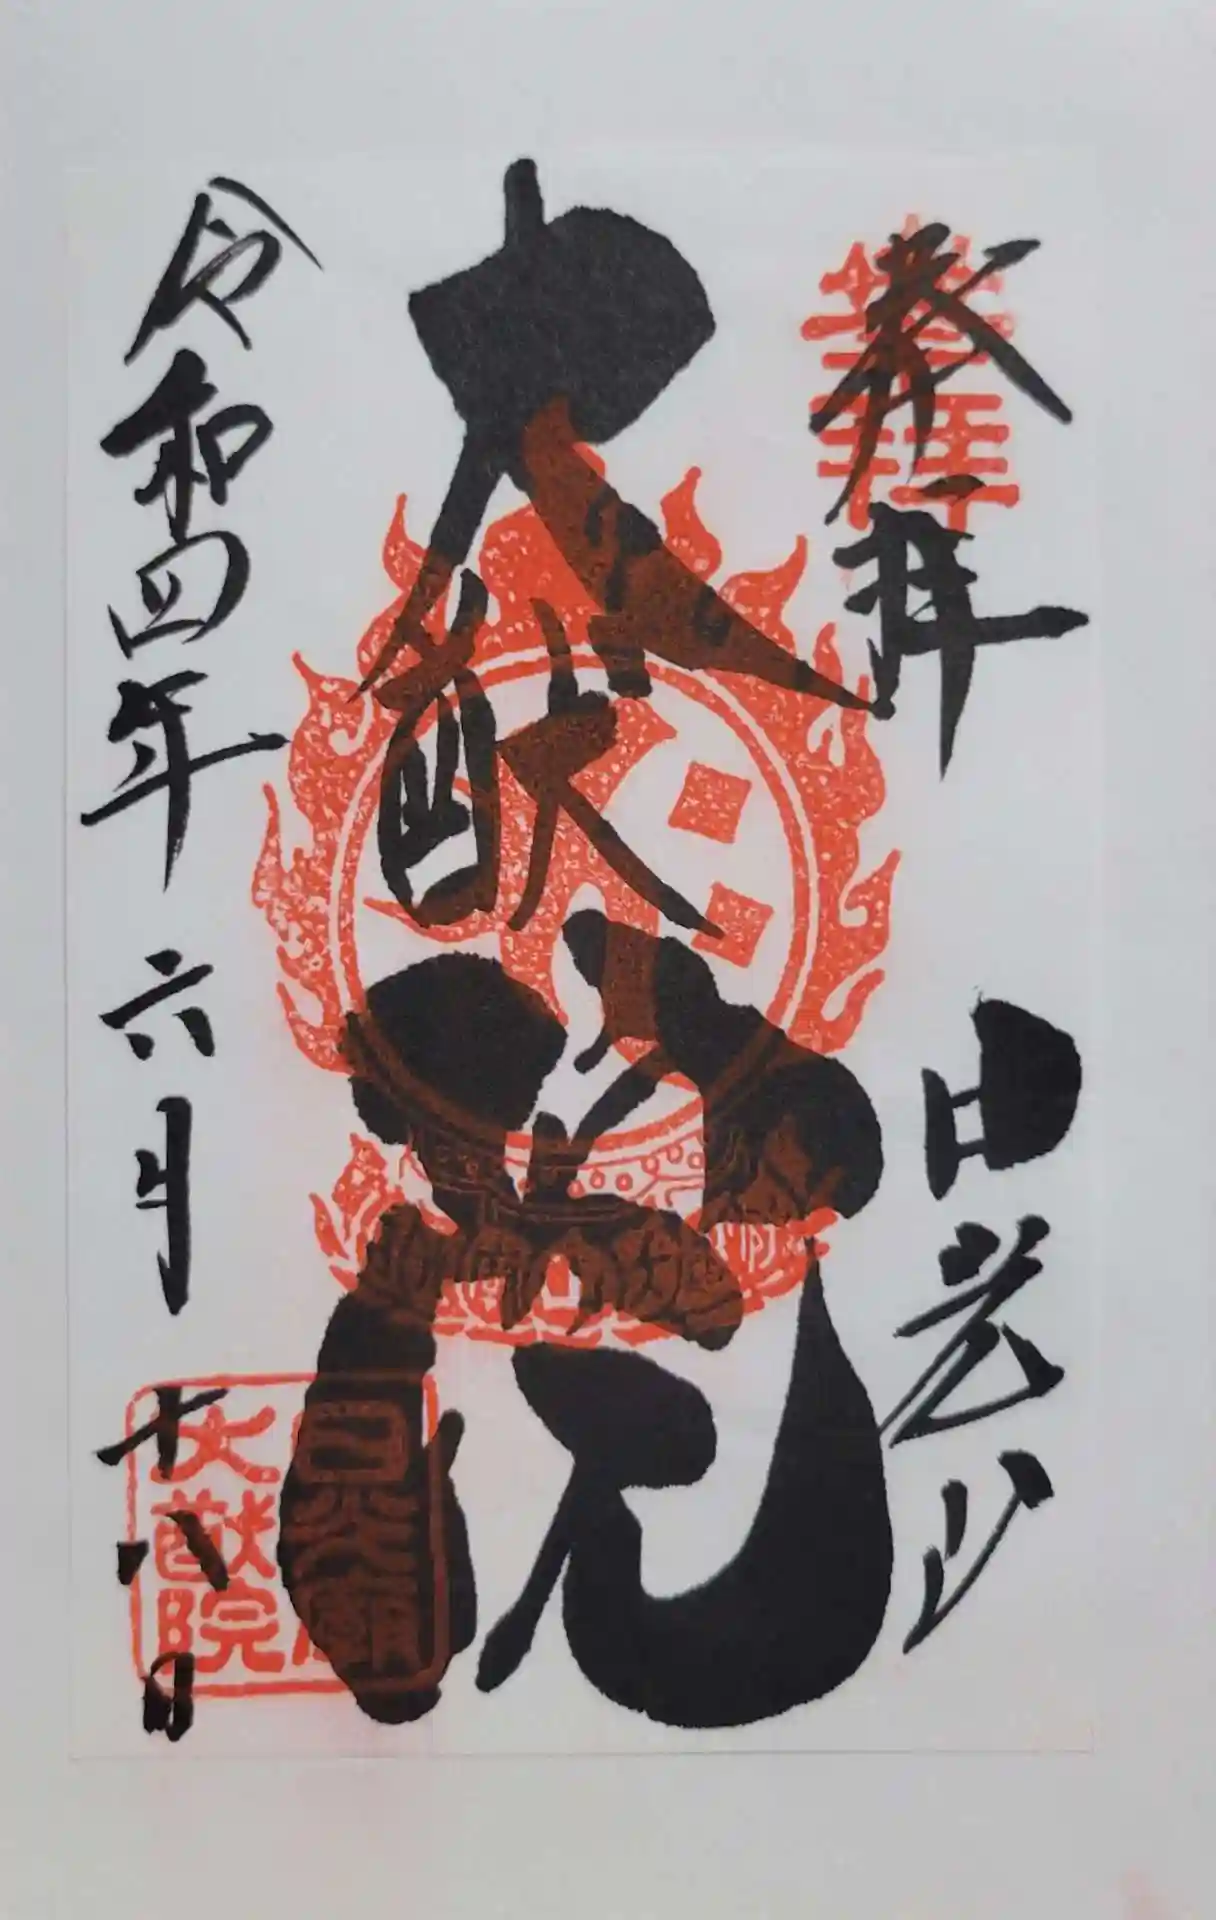 奉拝
日光山
大猷院
令和四年六月十八日
奉拝
日光廟
大猷院